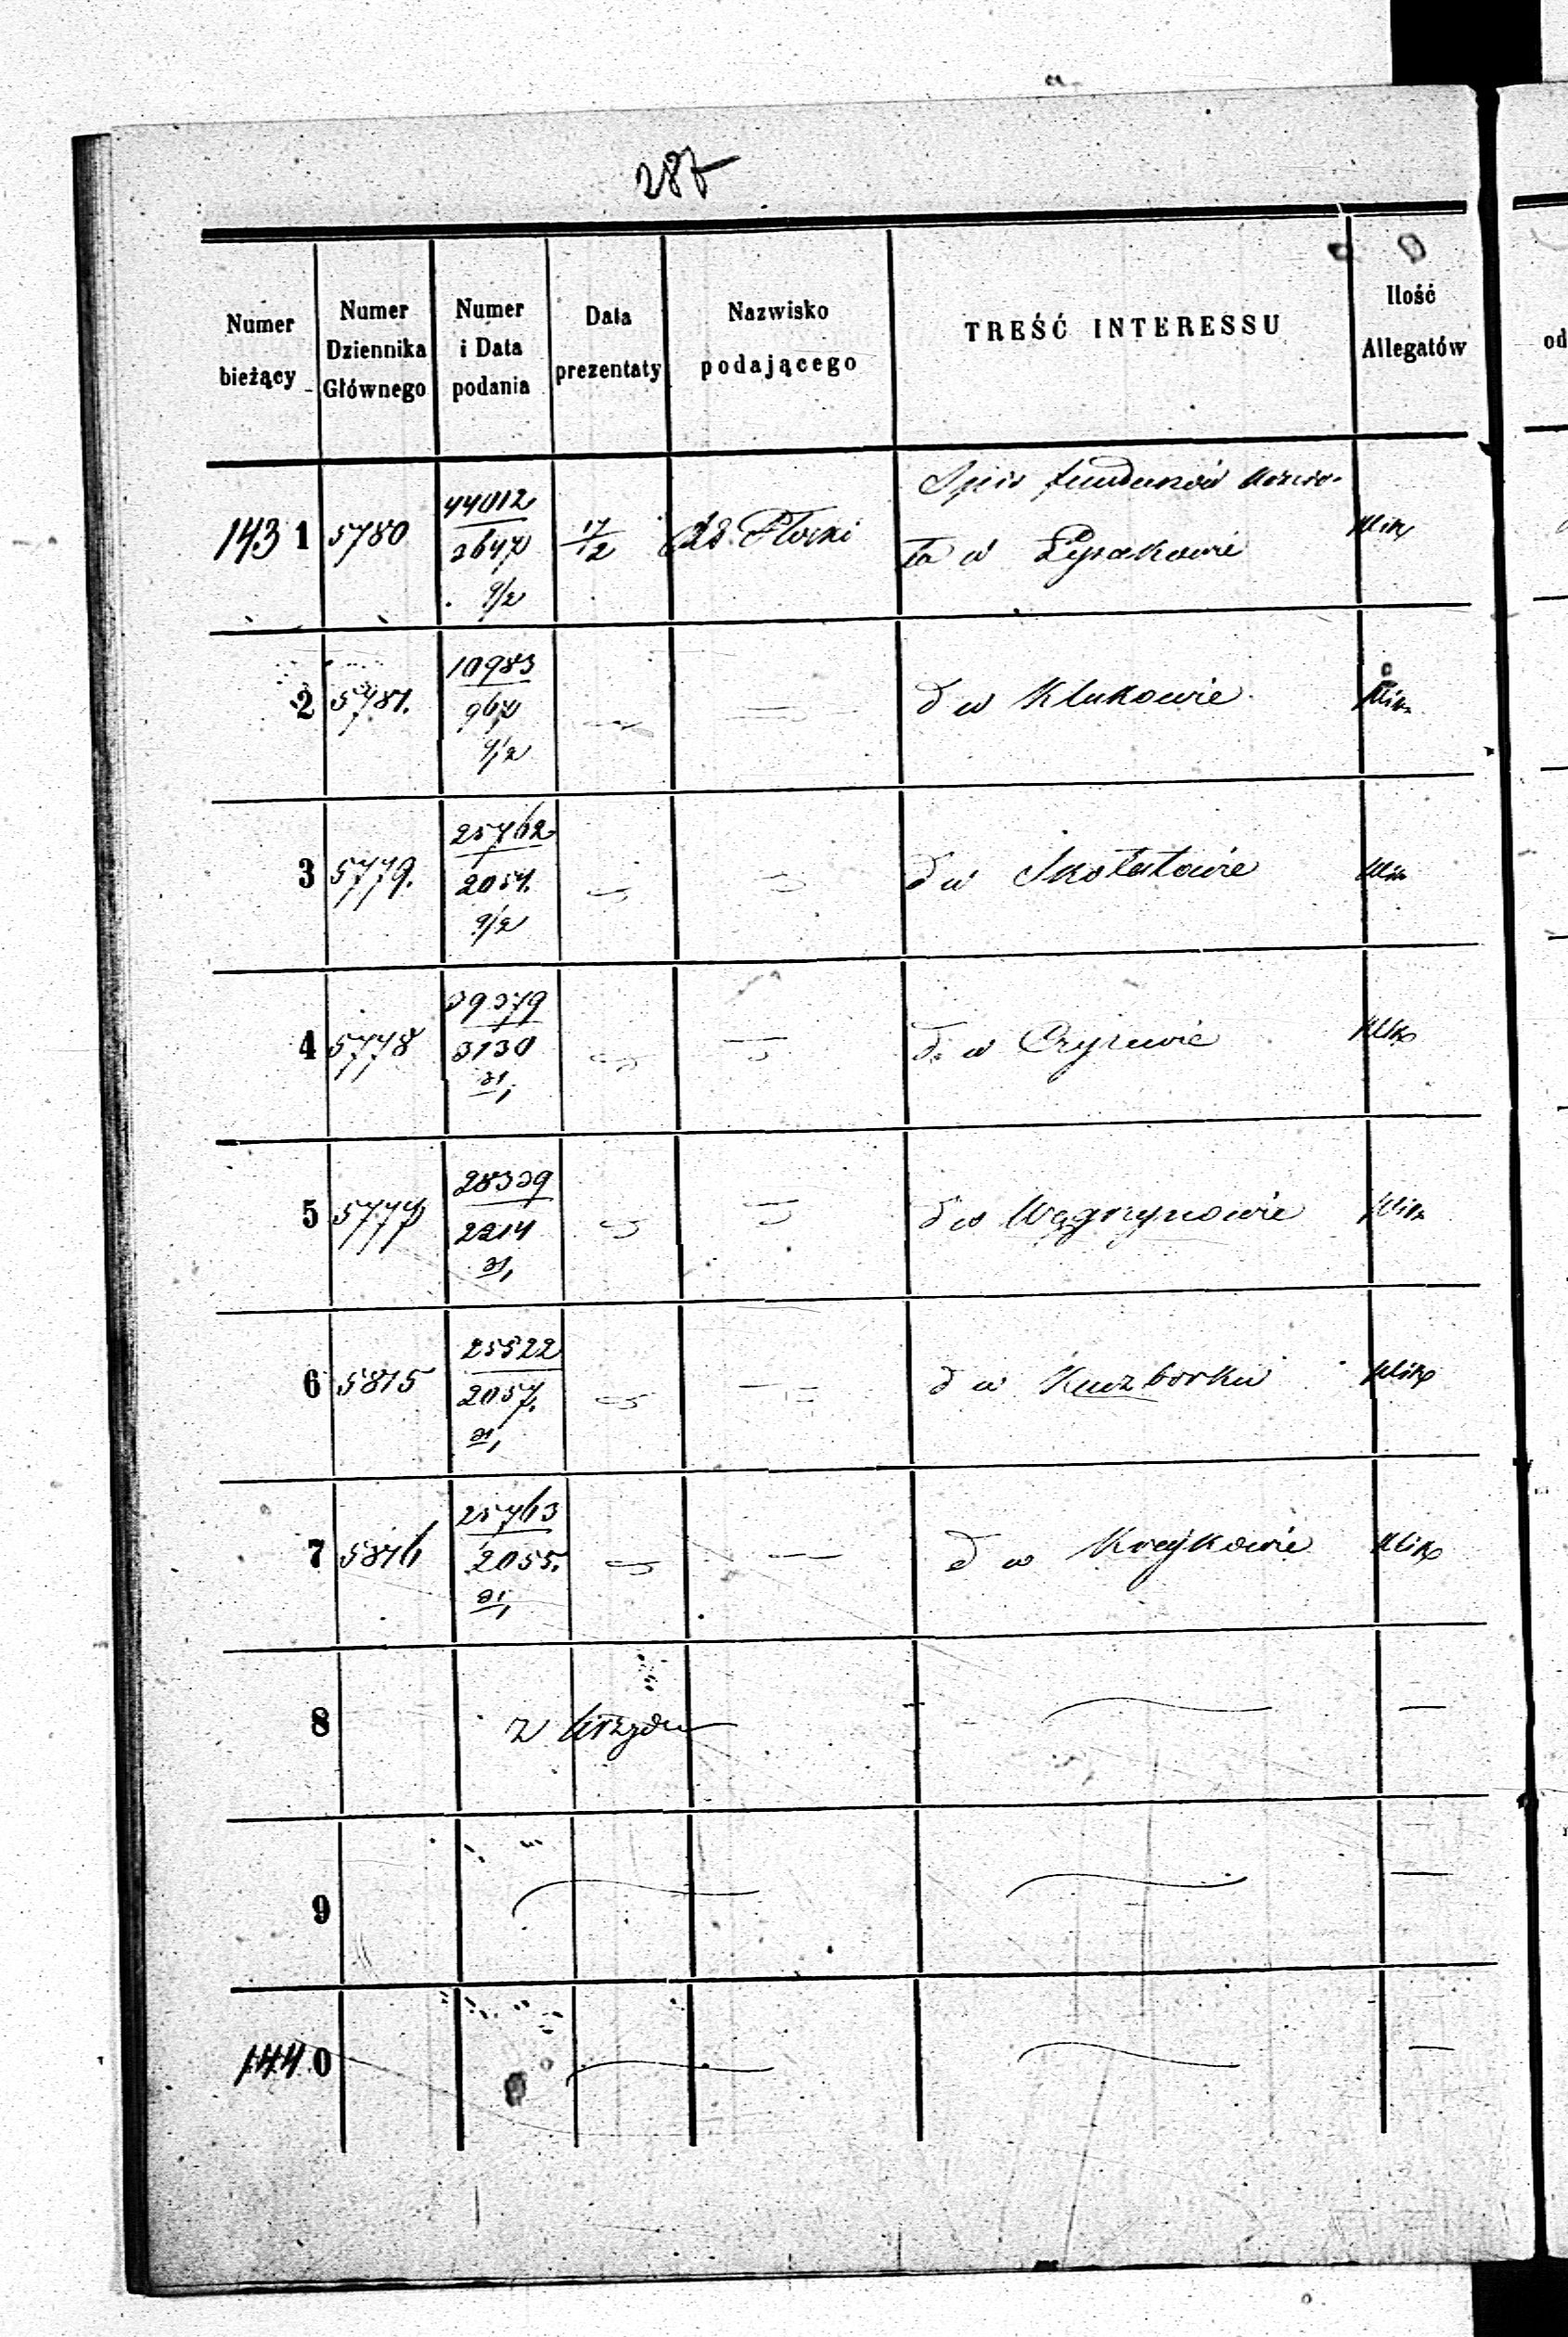 287
Numer bieżący
Numer Dziennika Głównego
Numer i Data podania
Data prezentaty
Nazwisko podającego
TREŚĆ INTERESSU
Ilość Allegatów
Spis funduszów kościo-
143 1 5780 44012 3647 9/2 17/2 Płocki ła w Łysakowie
2 5781. 10983 967 9/2 d w Klukowie
3 5779. 25762 2054. 9/2 d w Skołatowie
4 5778 39379 3130 d. w Czyżewie
5 5777 28339 2214 d w Węgrzynowie
6 5815 25522 2057. d w Kuczborku
7 5816 25763 2055. d w Krajkowie
8 z Urzędu
9
144 0